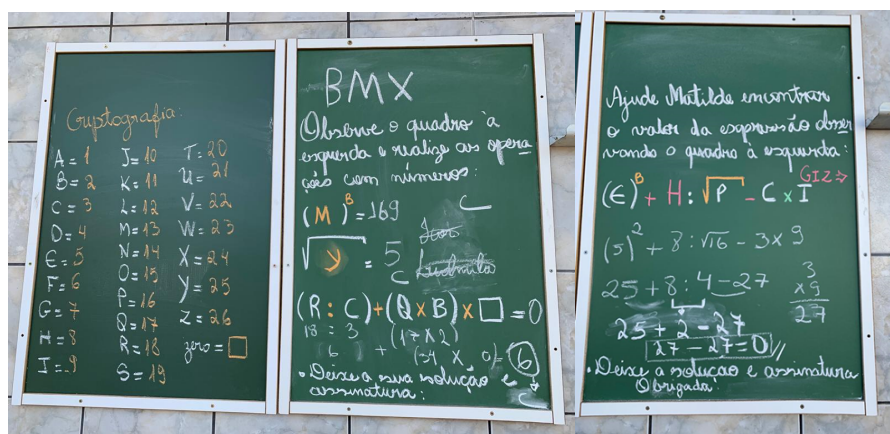 Criptografia:
A = 1
B = 2
C = 3
D = 4
E = 5
F = 6
G = 7
H = 8
I = 9
J = 10
K = 11
L = 12
M = 13
N = 14
O = 15
P = 16
Q = 17
R = 18
S = 19
T = 20
U = 21
V = 22
W = 23
X = 24
Y = 25
Z = 26
zero = □
BMX
Observe o quadro à
esquerda e realize as opera
ções com números:
(M)^B = 169
√y = 5
(R : C) + (Q x B) x □ = 0
18 : 3 + (17 x 2)
6 + (34 x 0) = 6
• Deixe a sua solução e
assinatura:
Ajude Matilde encontrar
o valor da expressão obser
vando o quadro à esquerda:
GIZ ⇒
(E)^B + H : √P - C x I
(5)² + 8 : √16 - 3 x 9
25 + 8 : 4 - 27
3
x 9
27
25 + 2 - 27
27 - 27 = 0 //
• Deixe a solução e assinatura
Obrigada!